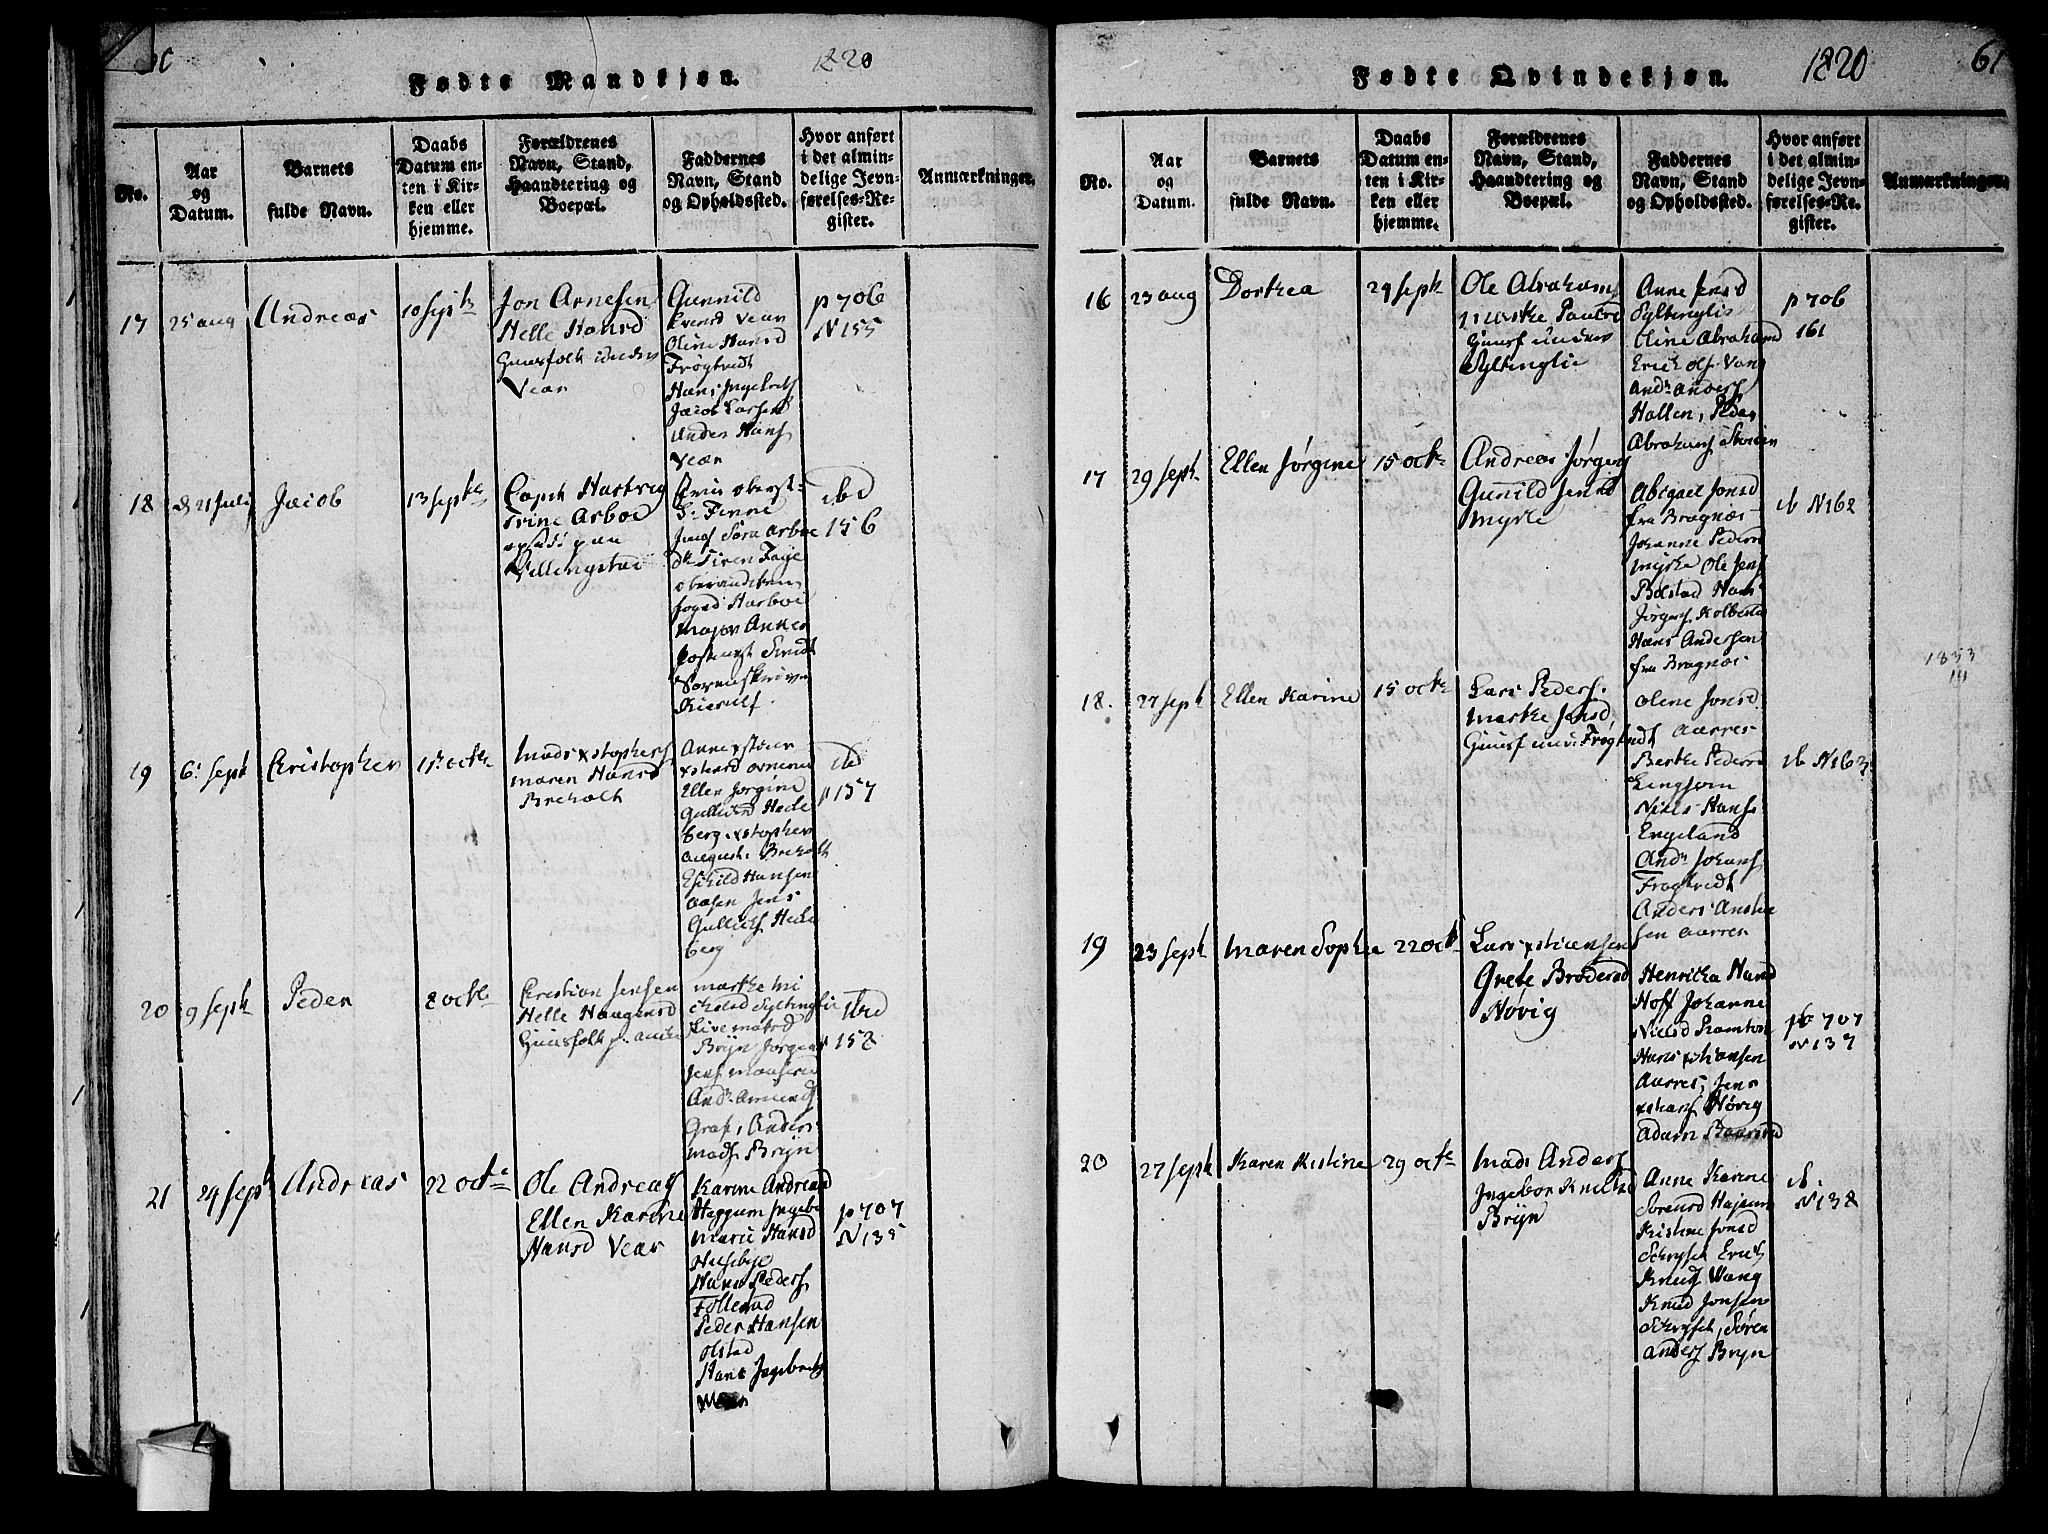 1820
Fødte Mandkjøn.
No.
Aar
og
Datum.
Barnets
fulde Navn.
Daabs
Datum en-
ten i Kir-
ken eller
hjemme.
Forældrenes
Navn, Stand,
Haandtering og
Boepæl.
Faddernes
Navn, Stand
og Opholdssted.
Hvor anført
i det almin-
delige Jevn-
førelses-Re-
gister.
Anmærkninger.
17
25 aug
Andreas
10 Septr
Jon Arnesen
Helle Hansd
Huusfolk under
Vear
Gunnild
Vear
Oline Hansd
Frøgtvedt
Hans Ingebrets
Jacob Larsen
under Hans
Vear
p 706
N 155
18
d. 21 Juli
Jacob
13 Septe
Capt Hartvig
Trine Arboe
paa
oberst
Arboe
Major Anker
Sorenskriver
ibd
156
19
6. Septr
Cristopher
15 octe
Mads xstophers
Maren Hansd
Breholt
Ellen Jørgine
Gulliksd Hede
berg xstopher
August Breholt
Eskild Hansen
Aasen Jens
Gulliks Hede
berg
ibd
p 157
20
9 Septr
Peder
8 octe
Cristian Jensen
Helle Haagensd
Huusfolk p.
Marthe Mi
chelsd Syltinglie
Live Matsd
Brÿn Jørgen
Anders
Mads Brÿn
ibid
158
21
24 Septr
Andreas
22 octe
Ole Andreas
Ellen Karine
Hansd Vear
Karine Andreasd
Haggum Ingeb
Marie Hansd
Huseby
Hans Peders
Follerud
Peder Hansen
olstad
Hans Ingebrets
Vear
p 707
N 135
1820
61
Fødte Qvindekjøn.
No.
Aar
og
Datum.
Barnets
fulde Navn.
Daabs
Datum en-
ten i Kir-
ken eller
hjemme.
Forældrenes
Navn, Stand,
Haandtering og
Boepæl.
Faddernes
Navn, Stand
og Opholdssted.
Hvor anført
i det almin-
delige Jevn-
førelses-Re-
gister.
Anmærkninger.
16
23 aug
Dorthea
24 Septr
Ole Abrahams
Marthe Paulsd
Huusf under
Syltinglie
Anne Jensd
Syltinglie
Oline Abrahamsd
Erick Ols Vang
Andr Anders
Hallen, Peder
Abrahams
p 706
161
17
29 Septr
Ellen Jørgine
15 octe
Andreas Jørgens
Gunild Jensd
Myrhe
Abigael Jonsd
fra Bragnæs
Johanne Pedersd
Myrhe Ole Jens
Bolstad Hans
Jørgens Kolbrstad
Hans Andersen
fra Bragnæs
ib N 162
18.
27 Septr
Ellen Karine
15 octe
Lars Peders.
Marthe Jensd
Huusf under Frøgtvedt
Olene Jonsd
Aarres
Berthe Pedersd
Lingsom
Niels Hans
Engeland
Andr Johans
Frøgtvedt
Anders Ansten
sen Aarres
ib N 163
1833
III
19
23 Septr
Maren Sophie
22 oct
Lars xstiansen
Grete Brødersd
Høvig
Henricka Hansd
Hoff Johanne
Nielsd Ramton
Hans xstiansen
Aarres, Jens
xstians Høvig
Adam
p 707
N 137
20
27 Septr
Karen Kistine
29 octe
Mads Anders
Ingebor Knudsd
Brÿn
Anne Karine
Sørensd Hajum
Kistine Jonsd
Erick
Knuds Wang
Knud Jonsen
Søren
Anders Brÿn
ib.
N 138